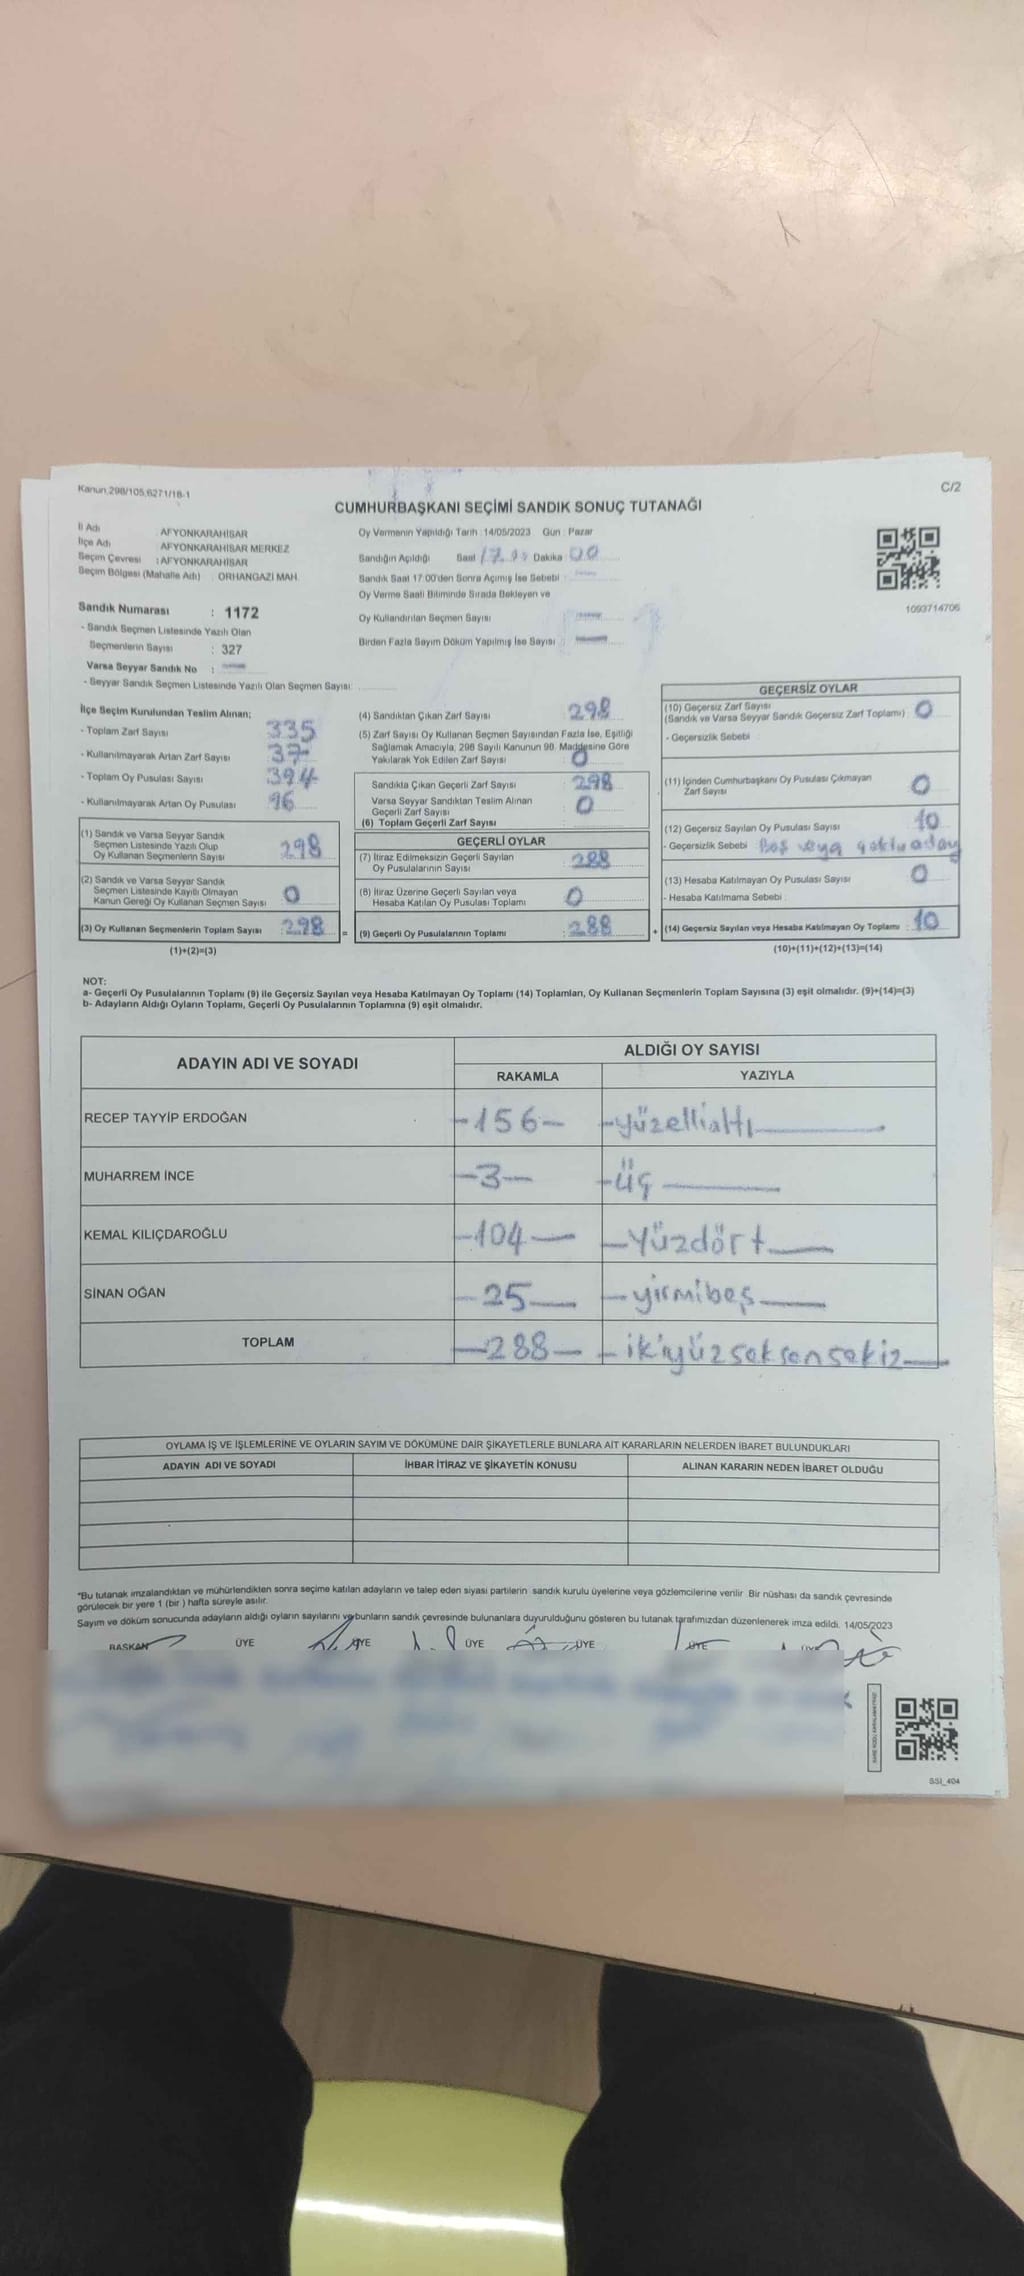 Kanun,298/105,6271/18-1
C/2
CUMHURBAŞKANI SEÇİMİ SANDIK SONUÇ TUTANAĞI
İl Adı : AFYONKARAHİSAR
İlçe Adı : AFYONKARAHİSAR MERKEZ
Seçim Çevresi : AFYONKARAHİSAR
Seçim Bölgesi (Mahalle Adı) : ORHANGAZİ MAH.
Sandık Numarası : 1172
- Sandık Seçmen Listesinde Yazılı Olan
Seçmenlerin Sayısı : 327
Varsa Seyyar Sandık No :
- Seyyar Sandık Seçmen Listesinde Yazılı Olan Seçmen Sayısı:
Oy Vermenin Yapıldığı Tarih 14/05/2023 Gün : Pazar
Sandığın Açıldığı Saat Dakika 00
Sandık Saat 17.00'den Sonra Açılmış İse Sebebi :
Oy Verme Saati Bitiminde Sırada Bekleyen ve
Oy Kullandırılan Seçmen Sayısı :
Birden Fazla Sayım Döküm Yapılmış İse Sayısı :
1093714706
İlçe Seçim Kurulundan Teslim Alınan;
- Toplam Zarf Sayısı 335
- Kullanılmayarak Artan Zarf Sayısı : 37
- Toplam Oy Pusulası Sayısı 394
- Kullanılmayarak Artan Oy Pusulası : 96
(1) Sandık ve Varsa Seyyar Sandık
Seçmen Listesinde Yazılı Olup
Oy Kullanan Seçmenlerin Sayısı : 298
(2) Sandık ve Varsa Seyyar Sandık
Seçmen Listesinde Kayıtlı Olmayan
Kanun Gereği Oy Kullanan Seçmen Sayısı : 0
(3) Oy Kullanan Seçmenlerin Toplam Sayısı : 298 =
(1)+(2)=(3)
(4) Sandıktan Çıkan Zarf Sayısı 298
(5) Zarf Sayısı Oy Kullanan Seçmen Sayısından Fazla İse, Eşitliği
Sağlamak Amacıyla, 298 Sayılı Kanunun 98. Maddesine Göre
Yakılarak Yok Edilen Zarf Sayısı : 0
Sandıkta Çıkan Geçerli Zarf Sayısı : 298
Varsa Seyyar Sandıktan Teslim Alınan
Geçerli Zarf Sayısı : 0
(6) Toplam Geçerli Zarf Sayısı
GEÇERLİ OYLAR
(7) İtiraz Edilmeksizin Geçerli Sayılan
Oy Pusulalarının Sayısı : 288
(8) İtiraz Üzerine Geçerli Sayılan veya
Hesaba Katılan Oy Pusulası Toplamı : 0
(9) Geçerli Oy Pusulalarının Toplamı : 288 +
GEÇERSİZ OYLAR
(10) Geçersiz Zarf Sayısı
(Sandık ve Varsa Seyyar Sandık Geçersiz Zarf Toplamı) : 0
- Geçersizlik Sebebi
(11) İçinden Cumhurbaşkanı Oy Pusulası Çıkmayan
Zarf Sayısı 0
(12) Geçersiz Sayılan Oy Pusulası Sayısı : 10
- Geçersizlik Sebebi Boş veya
(13) Hesaba Katılmayan Oy Pusulası Sayısı : 0
- Hesaba Katılmama Sebebi
(14) Geçersiz Sayılan veya Hesaba Katılmayan Oy Toplamı : 10
(10)+(11)+(12)+(13)=(14)
NOT:
a- Geçerli Oy Pusulalarının Toplamı (9) ile Geçersiz Sayılan veya Hesaba Katılmayan Oy Toplamı (14) Toplamları, Oy Kullanan Seçmenlerin Toplam Sayısına (3) eşit olmalıdır. (9)+(14)=(3)
b- Adayların Aldığı Oyların Toplamı, Geçerli Oy Pusulalarının Toplamına (9) eşit olmalıdır.
ADAYIN ADI VE SOYADI ALDIĞI OY SAYISI
RAKAMLA YAZIYLA
RECEP TAYYİP ERDOĞAN -156- -yüzellialtı-
MUHARREM İNCE -3- -üç-
KEMAL KILIÇDAROĞLU -104- -yüzdört-
SİNAN OĞAN -25- -yirmibeş-
TOPLAM -288- -ikiyüzseksensekiz-
OYLAMA İŞ VE İŞLEMLERİNE VE OYLARIN SAYIM VE DÖKÜMÜNE DAİR ŞİKAYETLERLE BUNLARA AİT KARARLARIN NELERDEN İBARET BULUNDUKLARI
ADAYIN ADI VE SOYADI İHBAR İTİRAZ VE ŞİKAYETİN KONUSU ALINAN KARARIN NEDEN İBARET OLDUĞU
*Bu tutanak imzalandıktan ve mühürlendikten sonra seçime katılan adayların ve talep eden siyasi partilerin sandık kurulu üyelerine veya gözlemcilerine verilir. Bir nüshası da sandık çevresinde
görülecek bir yere 1 (bir ) hafta süreyle asılır.
Sayım ve döküm sonucunda adayların aldığı oyların sayılarını ve bunların sandık çevresinde bulunanlara duyurulduğunu gösteren bu tutanak tarafımızdan düzenlenerek imza edildi. 14/05/2023
BAŞKAN ÜYE ÜYE ÜYE ÜYE ÜYE ÜYE
SSI_404